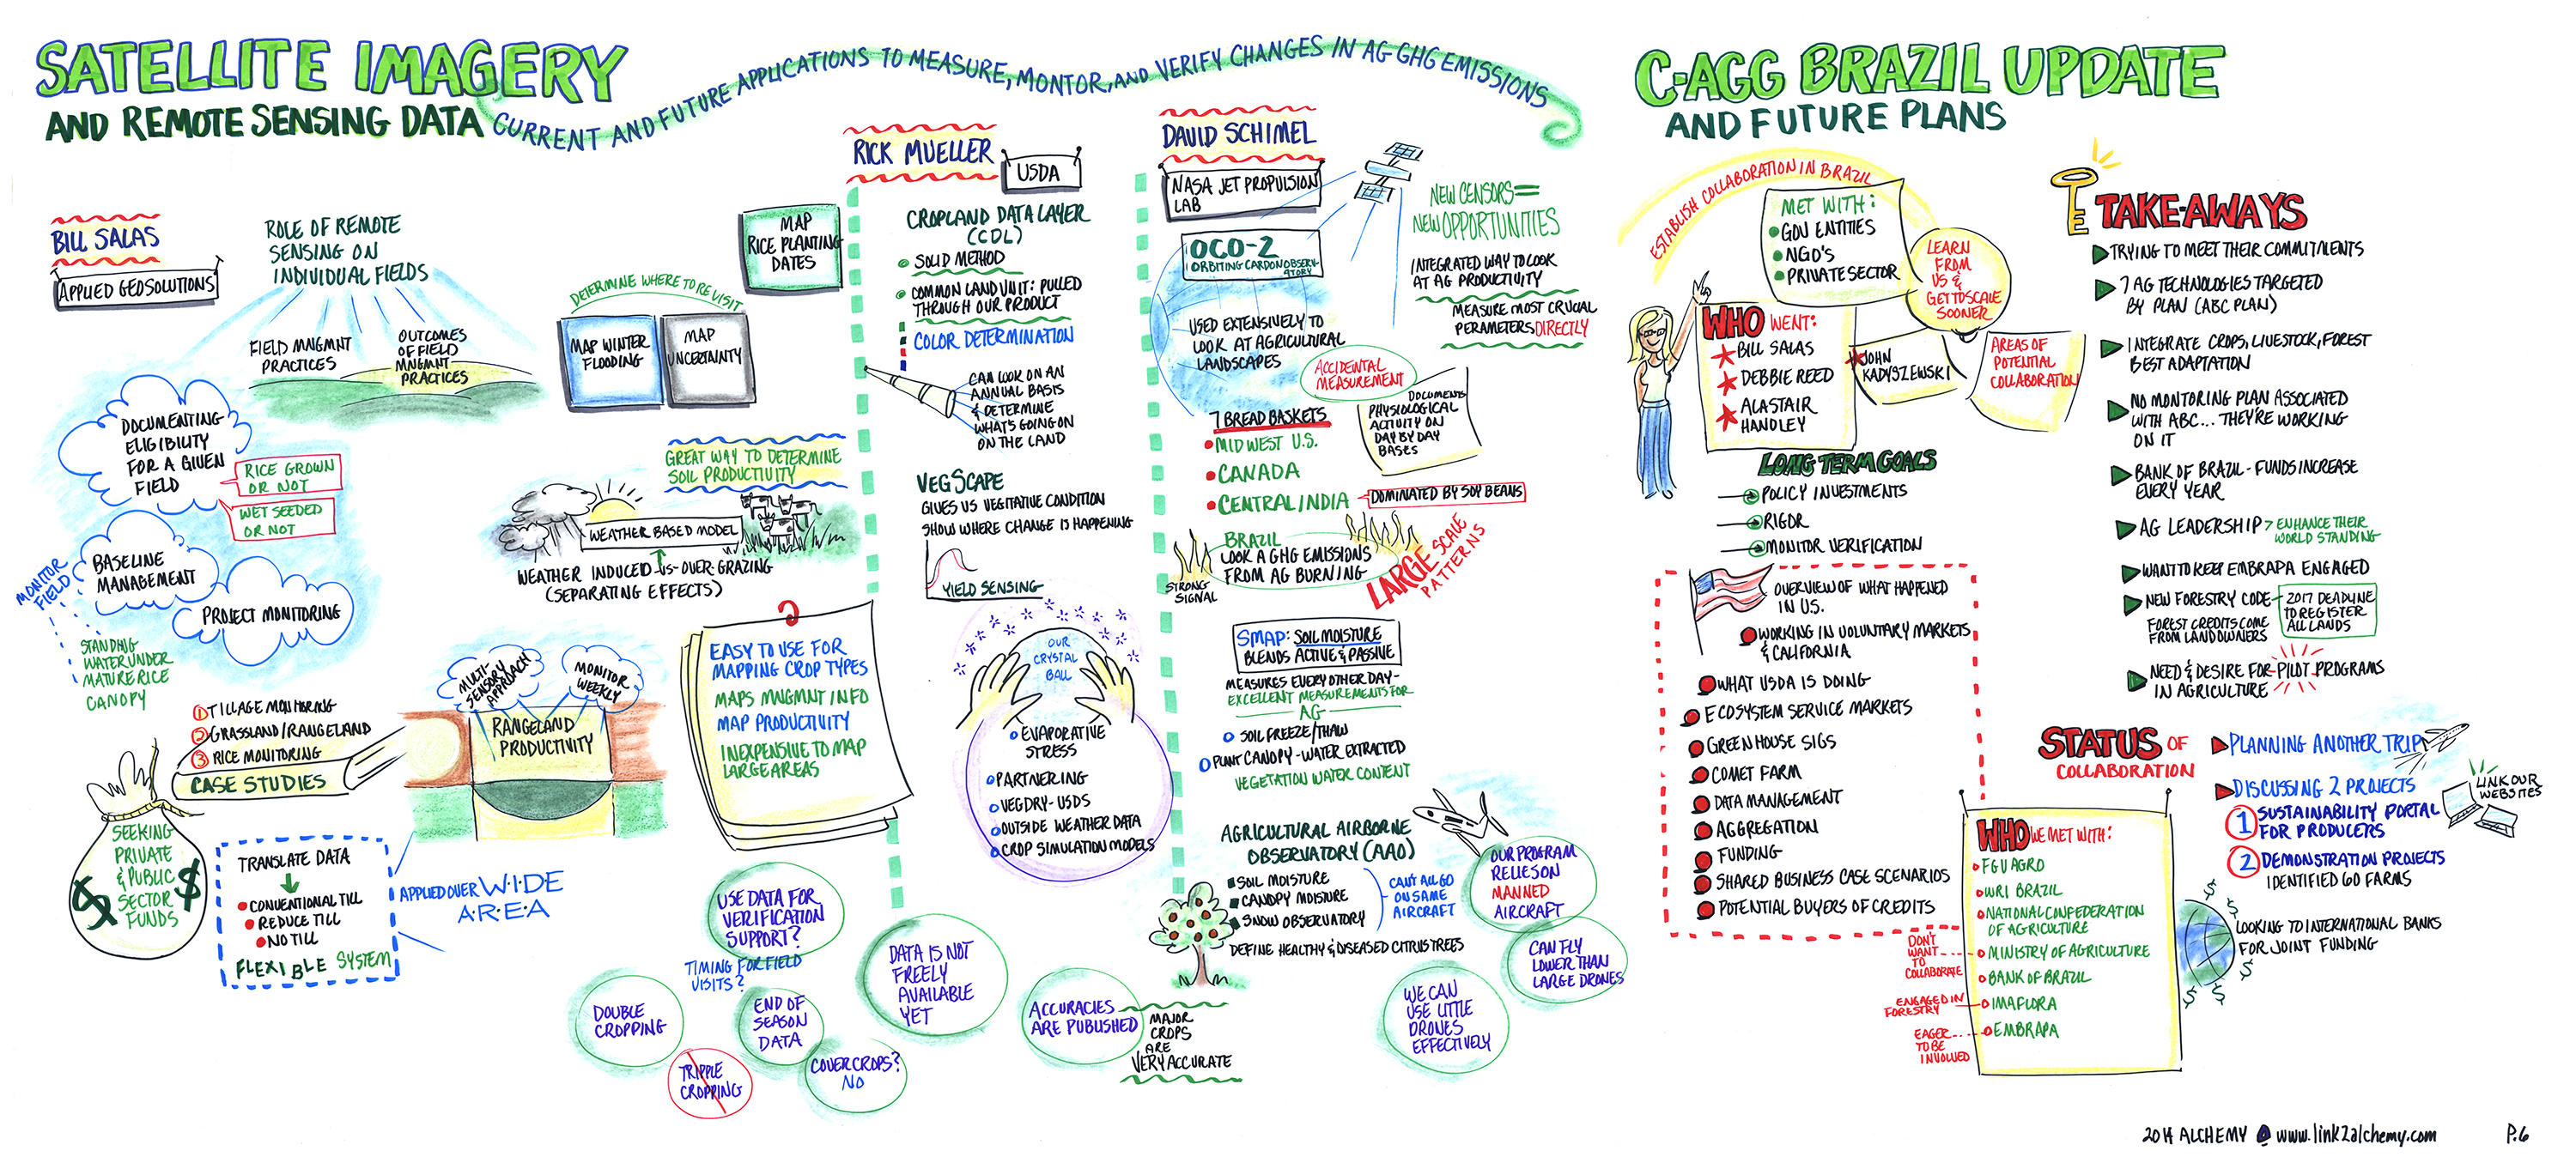 SATELLITE IMAGERY
AND REMOTE SENSING DATA
CURRENT AND FUTURE APPLICATIONS TO MEASURE, MONTOR, AND VERIFY CHANGES IN AG GHG EMISSIONS
BILL SALAS
APPLIED GEOSOLUTIONS
ROLE OF REMOTE
SENSING ON
INDIVIDUAL FIELDS
FIELD MNGMNT
PRACTICES
OUTCOMES
OF FIELD
MNGMNT
PRACTICES
DOCUMENTING
ELIGIBILITY
FOR A GIVEN
FIELD
RICE GROWN
OR NOT
WET SEEDED
OR NOT
BASELINE
MANAGEMENT
PROJECT MONITORING
MONITOR
FIELD
STANDING
WATER UNDER
MATURE RICE
CANOPY
1 TILLAGE MONITORING
2 GRASSLAND/RANGELAND
3 RICE MONITORING
CASE STUDIES
SEEKING
PRIVATE
& PUBLIC
SECTOR
FUNDS
$ $
TRANSLATE DATA
CONVENTIONAL TILL
REDUCE TILL
NO TILL
FLEXIBLE SYSTEM
APPLIED OVER W·I·D·E
A·R·E·A
MULTI-
SENSORY
APPROACH
MONITOR
WEEKLY
RANGELAND
PRODUCTIVITY
MAP
RICE PLANTING
DATES
DETERMINE WHERE TO REVISIT
MAP WINTER
FLOODING
MAP
UNCERTAINTY
GREAT WAY TO DETERMINE
SOIL PRODUCTIVITY
WEATHER BASED MODEL
WEATHER INDUCED -VS- OVER-GRAZING
(SEPARATING EFFECTS)
EASY TO USE FOR
MAPPING CROP TYPES
MAPS MNGMNT INFO
MAP PRODUCTIVITY
INEXPENSIVE TO MAP
LARGE AREAS
USE DATA FOR
VERIFICATION
SUPPORT?
TIMING FOR FIELD
VISITS?
DOUBLE
CROPPING
END OF
SEASON
DATA
TRIPPLE
CROPPING
COVER CROPS?
NO
RICK MUELLER
USDA
CROPLAND DATA LAYER
(CDL)
SOLID METHOD
COMMON LAND UNIT: PULLED
THROUGH OUR PRODUCT
COLOR DETERMINATION
CAN LOOK ON AN
ANNUAL BASIS
& DETERMINE
WHAT'S GOING ON
ON THE LAND
VEGSCAPE
GIVES US VEGITATIVE CONDITION
SHOW WHERE CHANGE IS HAPPENING
YIELD SENSING
OUR
CRYSTAL
BALL
EVAPORATIVE
STRESS
PARTNERING
VEGDRY-USDS
OUTSIDE WEATHER DATA
CROP SIMULATION MODELS
DATA IS NOT
FREELY
AVAILABLE
YET
ACCURACIES
ARE PUBLISHED
MAJOR
CROPS
ARE
VERY ACCURATE
DAVID SCHIMEL
NASA JET PROPULSION
LAB
OCO-2
ORBITING CARDON OBSERV-
ATORY
USED EXTENSIVELY TO
LOOK AT AGRICULTURAL
LANDSCAPES
ACCIDENTAL
MEASUREMENT
DOCUMENTS
PHYSIOLOGICAL
ACTIVITY ON
DAY BY DAY
BASES
NEW CENSORS=
NEW OPPORTUNITIES
INTEGRATED WAY TO LOOK
AT AG PRODUCTIVITY
MEASURE MOST CRUCIAL
PERAMETERS DIRECTLY
7 BREAD BASKETS
MIDWEST U.S.
CANADA
CENTRAL INDIA
DOMINATED BY SOY BEANS
BRAZIL
LOOK A GHG EMISSIONS
FROM AG BURNING
STRONG
SIGNAL
LARGE SCALE
PATTERNS
SMAP: SOIL MOISTURE
BLENDS ACTIVE & PASSIVE
MEASURES EVERY OTHER DAY-
EXCELLENT MEASUREMENTS FOR
AG
SOIL FREEZE/THAW
PLANT CANOPY-WATER EXTRACTED
VEGETATION WATER CONTENT
AGRICULTURAL AIRBORNE
OBSERVATORY (AAO)
SOIL MOISTURE
CANOPY MOISTURE
SNOW OBSERVATORY
CAN'T ALL GO
ON SAME
AIRCRAFT
DEFINE HEALTHY & DISEASED CITRUS TREES
OUR PROGRAM
RELIES ON
MANNED
AIRCRAFT
CAN FLY
LOWER THAN
LARGE DRONES
WE CAN
USE LITTLE
DRONES
EFFECTIVELY
C-AGG BRAZIL UPDATE
AND FUTURE PLANS
ESTABLISH COLLABORATION IN BRAZIL
MET WITH:
GOV ENTITIES
NGO'S
PRIVATE SECTOR
LEARN
FROM
US &
GET TO SCALE
SOONER
WHO WENT:
BILL SALAS
DEBBIE REED
ALASTAIR
HANDLEY
JOHN
KADYSZEWSKI
AREAS OF
POTENTIAL
COLLABORATION
LONG TERM GOALS
POLICY INVESTMENTS
RIGOR
MONITOR VERIFICATION
OVERVIEW OF WHAT HAPPENED
IN U.S.
WORKING IN VOLUNTARY MARKETS
& CALIFORNIA
WHAT USDA IS DOING
ECOSYSTEM SERVICE MARKETS
GREEN HOUSE SIGS
COMET FARM
DATA MANAGEMENT
AGGREGATION
FUNDING
SHARED BUSINESS CASE SCENARIOS
POTENTIAL BUYERS OF CREDITS
KEY
TAKE-AWAYS
TRYING TO MEET THEIR COMMITMENTS
7 AG TECHNOLOGIES TARGETED
BY PLAN (ABC PLAN)
INTEGRATE CROPS, LIVESTOCK, FOREST
BEST ADAPTATION
NO MONTORING PLAN ASSOCIATED
WITH ABC... THEY'RE WORKING
ON IT
BANK OF BRAZIL - FUNDS INCREASE
EVERY YEAR
AG LEADERSHIP > ENHANCE THEIR
WORLD STANDING
WANT TO KEEP EMBRAPA ENGAGED
NEW FORESTRY CODE - 2017 DEADLINE
TO REGISTER
ALL LANDS
FOREST CREDITS COME
FROM LANDOWNERS
NEED & DESIRE FOR PILOT PROGRAMS
IN AGRICULTURE
STATUS OF
COLLABORATION
PLANNING ANOTHER TRIP
DISCUSSING 2 PROJECTS
1 SUSTAINABILITY PORTAL
FOR PRODUCERS
2 DEMONSTRATION PROJECTS
IDENTIFIED 60 FARMS
LINK OUR
WEBSITES
LOOKING TO INTERNATIONAL BANKS
FOR JOINT FUNDING
WHO WE MET WITH:
FGV AGRO
WRI BRAZIL
NATIONAL CONFEDERATION
OF AGRICULTURE
MINISTRY OF AGRICULTURE
BANK OF BRAZIL
IMAFLORA
EMBRAPA
DON'T
WANT
TO
COLLABORATE
ENGAGED IN
FORESTRY
EAGER
TO BE
INVOLVED
2014 ALCHEMY www.link2alchemy.com P.6